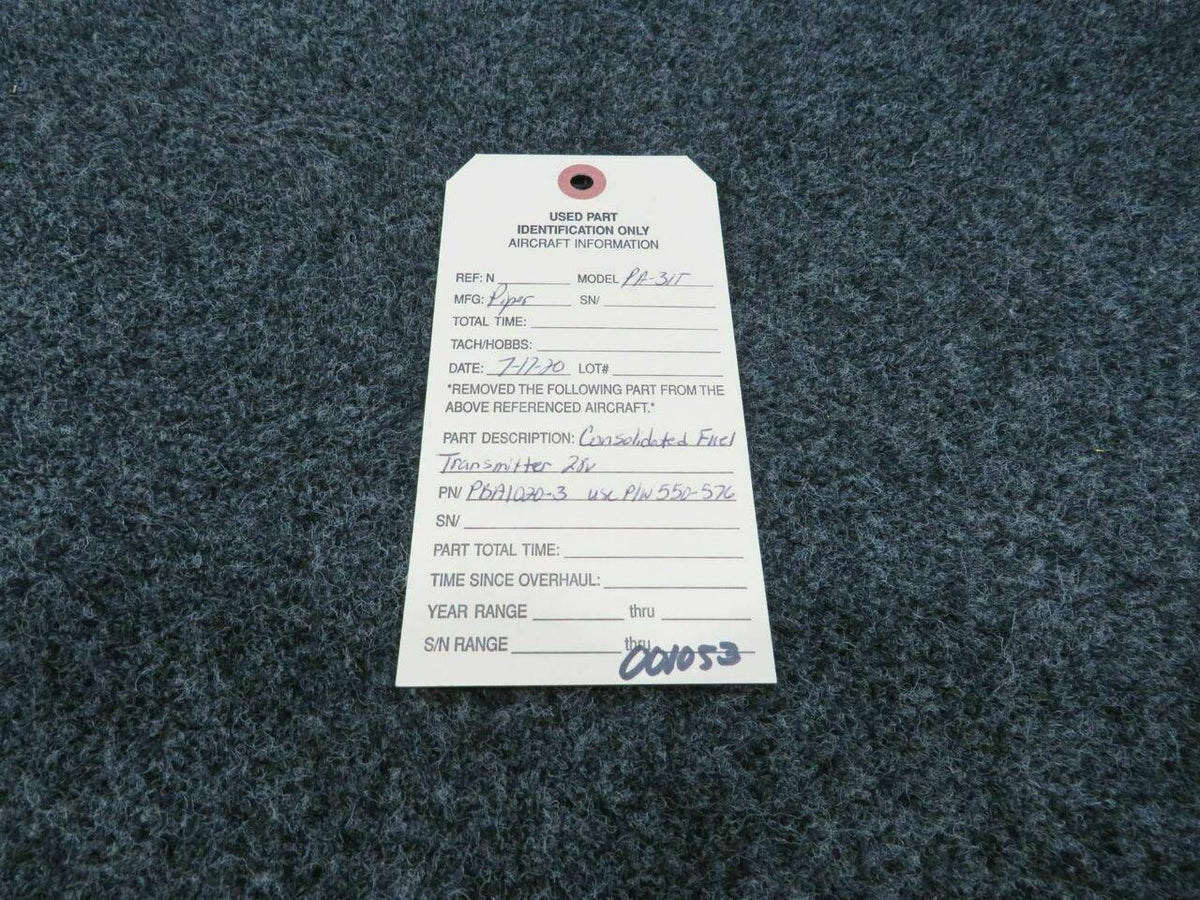 USED PART
IDENTIFICATION ONLY
AIRCRAFT INFORMATION
REF: N MODEL PA-31T
MFG: Piper SN/
TOTAL TIME:
TACH/HOBBS:
DATE: 7-17-20 LOT#
*REMOVED THE FOLLOWING PART FROM THE
ABOVE REFERENCED AIRCRAFT.*
PART DESCRIPTION: Consolidated Fuel
Transmitter 28v
PN/ PBA1020-3 use P/N 550-576
SN/
PART TOTAL TIME:
TIME SINCE OVERHAUL:
YEAR RANGE thru
S/N RANGE thru
001053